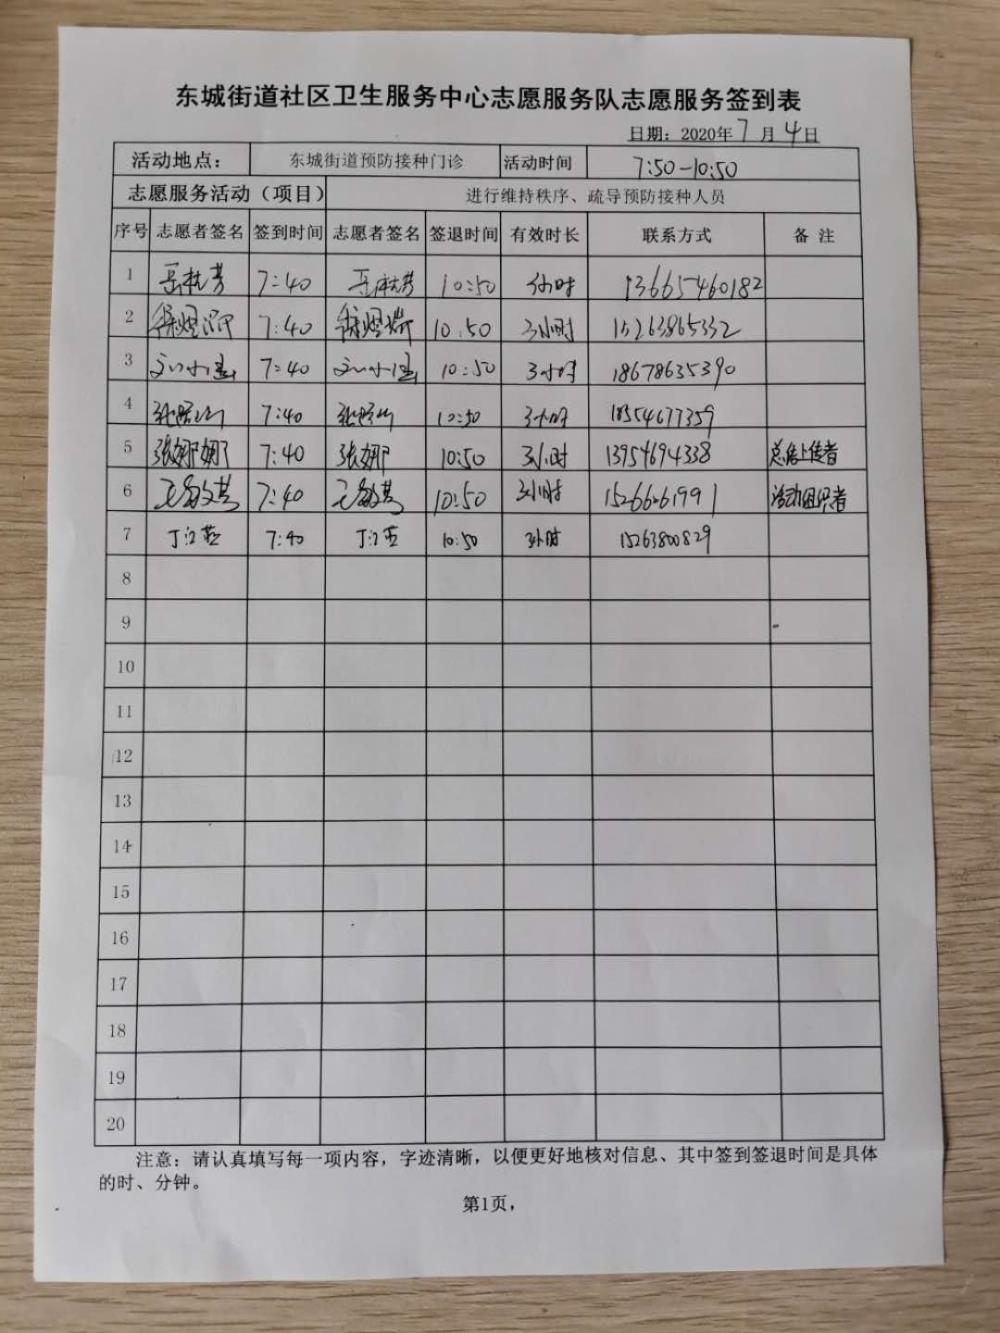 东城街道社区卫生服务中心志愿服务队志愿服务签到表
日期：2020年7月4日
活动地点： 东城街道预防接种门诊 活动时间 7:50-10:50
志愿服务活动（项目） 进行维持秩序、疏导预防接种人员
序号 志愿者签名 签到时间 志愿者签名 签退时间 有效时长 联系方式 备 注
1 7:40 10:50 小时 13665460182
2 7:40 10:50 3小时 15263865332
3 刘小 7:40 刘小 10:50 3小时 18678635390
4 7:40 10:50 3小时 18554677359
5 张娜娜 7:40 张娜 10:50 3小时 13954694338 总结上传者
6 王敏 7:40 王敏 10:50 3小时 15266261991 活动组织者
7 丁 7:40 丁 10:50 3小时 15263800829
8
9
10
11
12
13
14
15
16
17
18
19
20
注意：请认真填写每一项内容，字迹清晰，以便更好地核对信息、其中签到签退时间是具体
的时、分钟。
第1页，